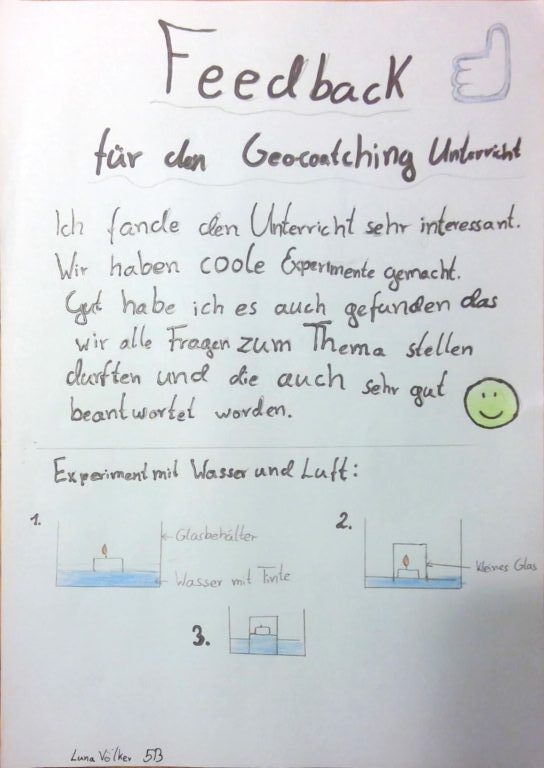 Feedback
für den Geocoatching Unterricht
Ich fande den Unterricht sehr interessant.
Wir haben coole Experimente gemacht.
Gut habe ich es auch gefunden das
wir alle Fragen zum Thema stellen
durften und die auch sehr gut
beantwortet worden.
Experiment mit Wasser und Luft:
1.
Glasbehälter
Wasser mit Tinte
2.
kleines Glas
3.
Luna Völker 5B